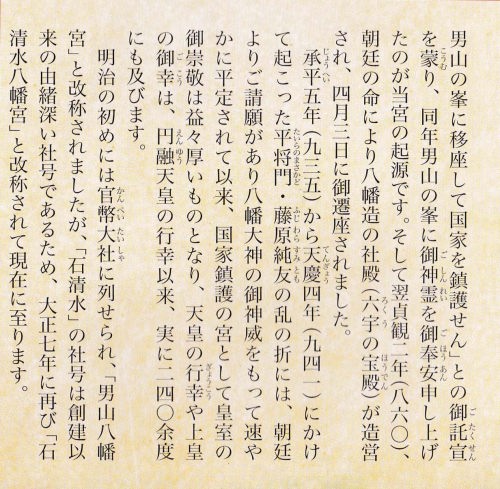 男山の峯に移座して国家を鎮護せん」との御託宣
を蒙り、同年男山の峯に御神霊を御奉安申し上げ
たのが当宮の起源です。そして翌貞観二年(八六〇)、
朝廷の命により八幡造の社殿(六宇の宝殿)が造営
され、四月三日に御遷座されました。
承平五年(九三五)から天慶四年(九四一)にかけ
て起こった平将門・藤原純友の乱の折には、朝廷
よりご請願があり八幡大神の御神威をもって速や
かに平定されて以来、国家鎮護の宮として皇室の
御崇敬は益々厚いものとなり、天皇の行幸や上皇
の御幸は、円融天皇の行幸以来、実に二四〇余度
にも及びます。
明治の初めには官幣大社に列せられ、「男山八幡
宮」と改称されましたが、「石清水」の社号は創建以
来の由緒深い社号であるため、大正七年に再び「石
清水八幡宮」と改称されて現在に至ります。